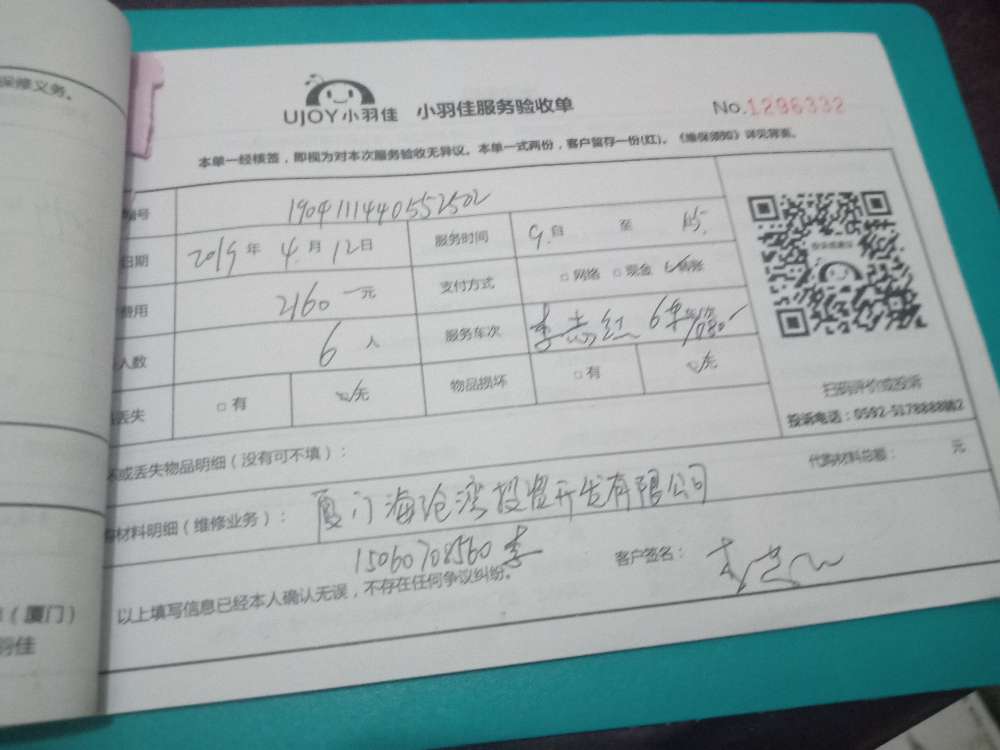 保修义务。
UJOY小羽佳 小羽佳服务验收单 No.1296332
本单一经核签，即视为对本次服务验收无异议。本单一式两份，客户留存一份(红)。《维保须知》详见背面。
编号 1904111440552502
日期 2019年 4月 12日 服务时间 9. 自 至
费用 2160 元 支付方式 □网络 □现金 转账
人数 6 人 服务车次 李志红 6年
丢失 □有 无 物品损坏 □有 无
扫码评价或投诉
投诉电话：0592-5178888转2
或丢失物品明细（没有可不填）：
代购材料总额： 元
材料明细（维修业务）： 厦门海沧湾投资开发有限公司
15060708560 李
客户签名：
以上填写信息已经本人确认无误，不存在任何争议纠纷。
（厦门）
羽佳